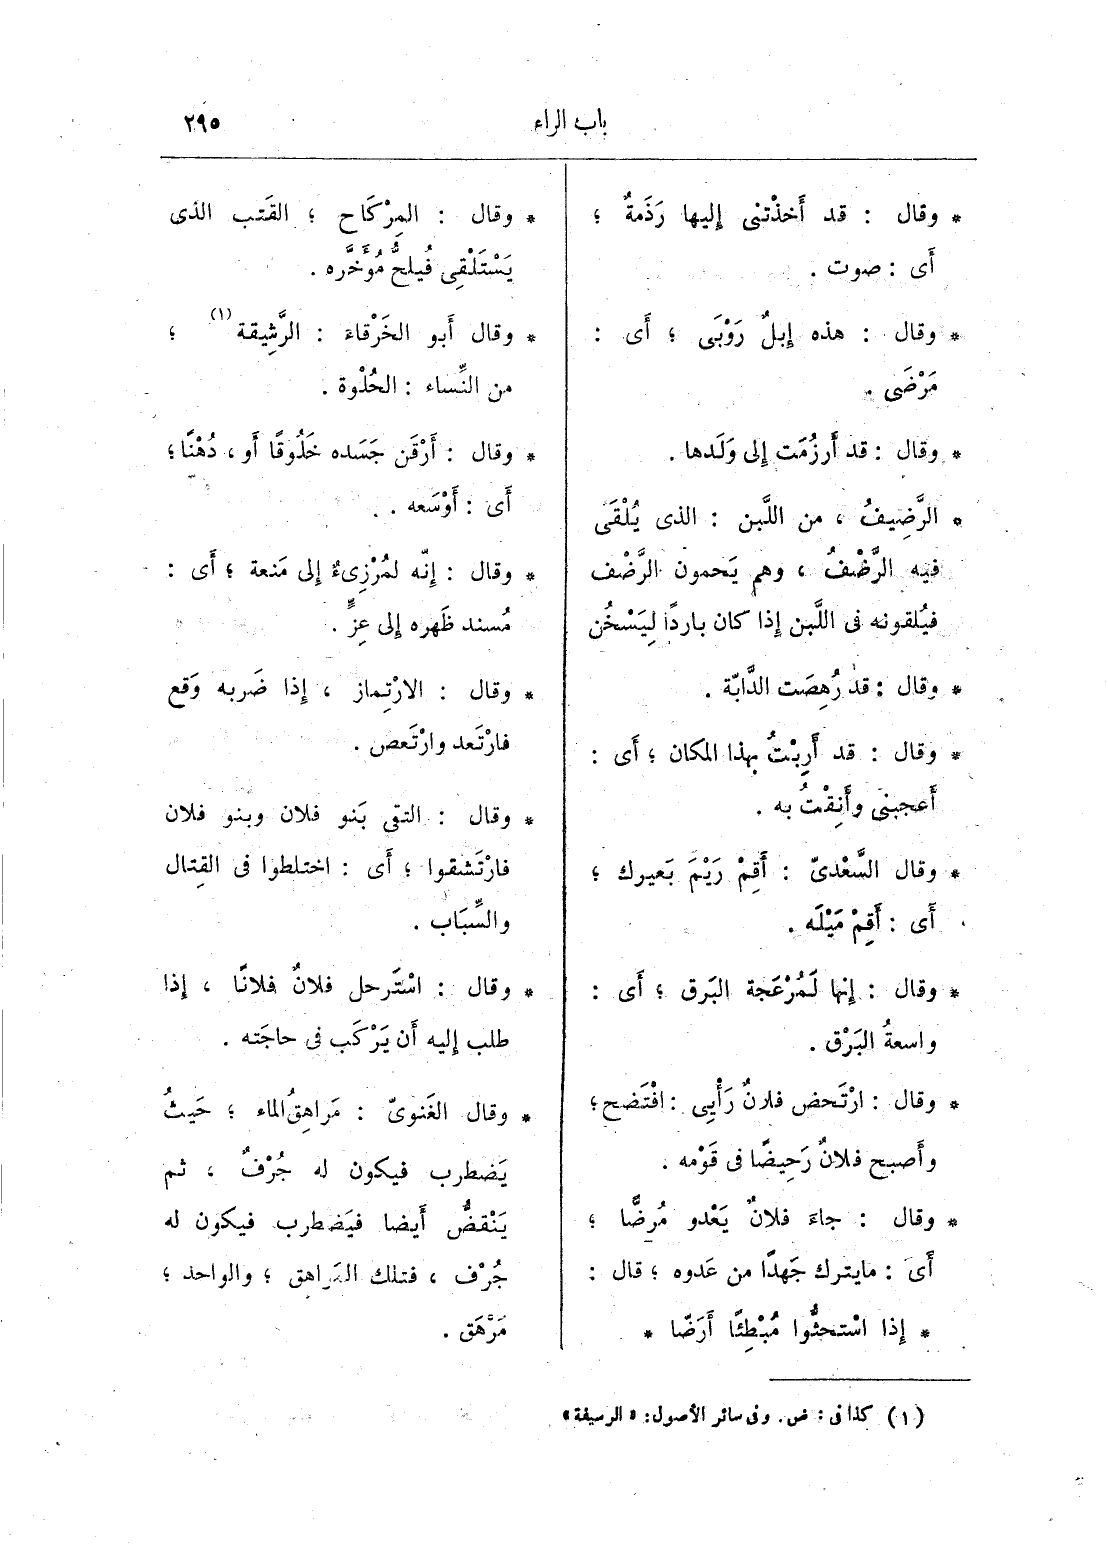 باب الراء ٢٩٥
* وقال : قد أَخذْتنى إليها رَذَمةٌ ؛
أَى : صوت .
* وقال : هذه إبلٌ رَوْبَى ؛ أَى :
مَرْضَى .
* وقال : قد أَرزُمَت إلى وَلَدها .
* الرَّضِيفُ ، من اللبن : الذى يُلْقَى
فيه الرَّضْفُ ، وهم يَحمون الرَّضْف
فيُلقونه فى اللَّبن إذا كان باردًا لِيَسْخُن
* وقال : قد رُهِصَت الدَّابّة .
* وقال : قد أَرِبْتُ بهذا المكان ؛ أَى :
أَعجبنى وأَنِقْتُ به .
* وقال السَّعْدىّ : أَقِمْ رَيْمَ بَعيرك ؛
أَى : أَقِمْ مَيْلَه .
* وقال : إنها لَمُرْعَجة البَرق ؛ أَى :
واسعةُ البَرْق .
* وقال : ارْتَحض فلانٌ رَأْيِى : افْتَضح ؛
وأَصبح فلانٌ رَحِيضًا فى قَوْمه .
* وقال : جاءَ فلانٌ يَعْدو مُرِضًّا ؛
أَى : مايترك جَهدًا من عَدوه ؛ قال :
* إذا اسْتحثُّوا مُبْطِئًا أَرَضَّا *
* وقال : المِرْكَاح ؛ القَتب الذى
يَسْتَلْقِى فُيلحُّ مُؤَخَّره .
* وقال أَبو الخَرْقاءَ : الرَّشِيقة (١) ؛
من النِّساء : الحُلْوة .
* وقال : أَرْقَن جَسَده خَلُوقًا أَو ، دُهْنًا ؛
أَى : أَوْسَعه .
* وقال : إنّه لمُرْزِىءٌ إلى مَنعة ؛ أَى :
مُسند ظَهره إلى عِزٍّ .
* وقال : الارْتِماز ، إذا ضَربه وَقع
فارْتَعد وارْتَعص .
* وقال : التقى بَنو فلان وبنو فلان
فارْتَشقوا ؛ أَى : اختلطوا فى القِتال
والسِّبَاب .
* وقال : اسْتَرحل فلانٌ فلانًا ، إذا
طلب إليه أَن يَرْكَب فى حاجَته .
* وقال الغَنوىّ : مَراهِقُ الماء ؛ حَيثُ
يَضطرب فيكون له جُرْفٌ ، ثم
يَنْقضُّ أَيضا فيَضطرب فيكون له
جُرْف ، فتلك المَراهق ؛ والواحد ؛
مَرْهَق .
(١) كذا فى : ض . وفى سائر الأصول : « الرسيفة »